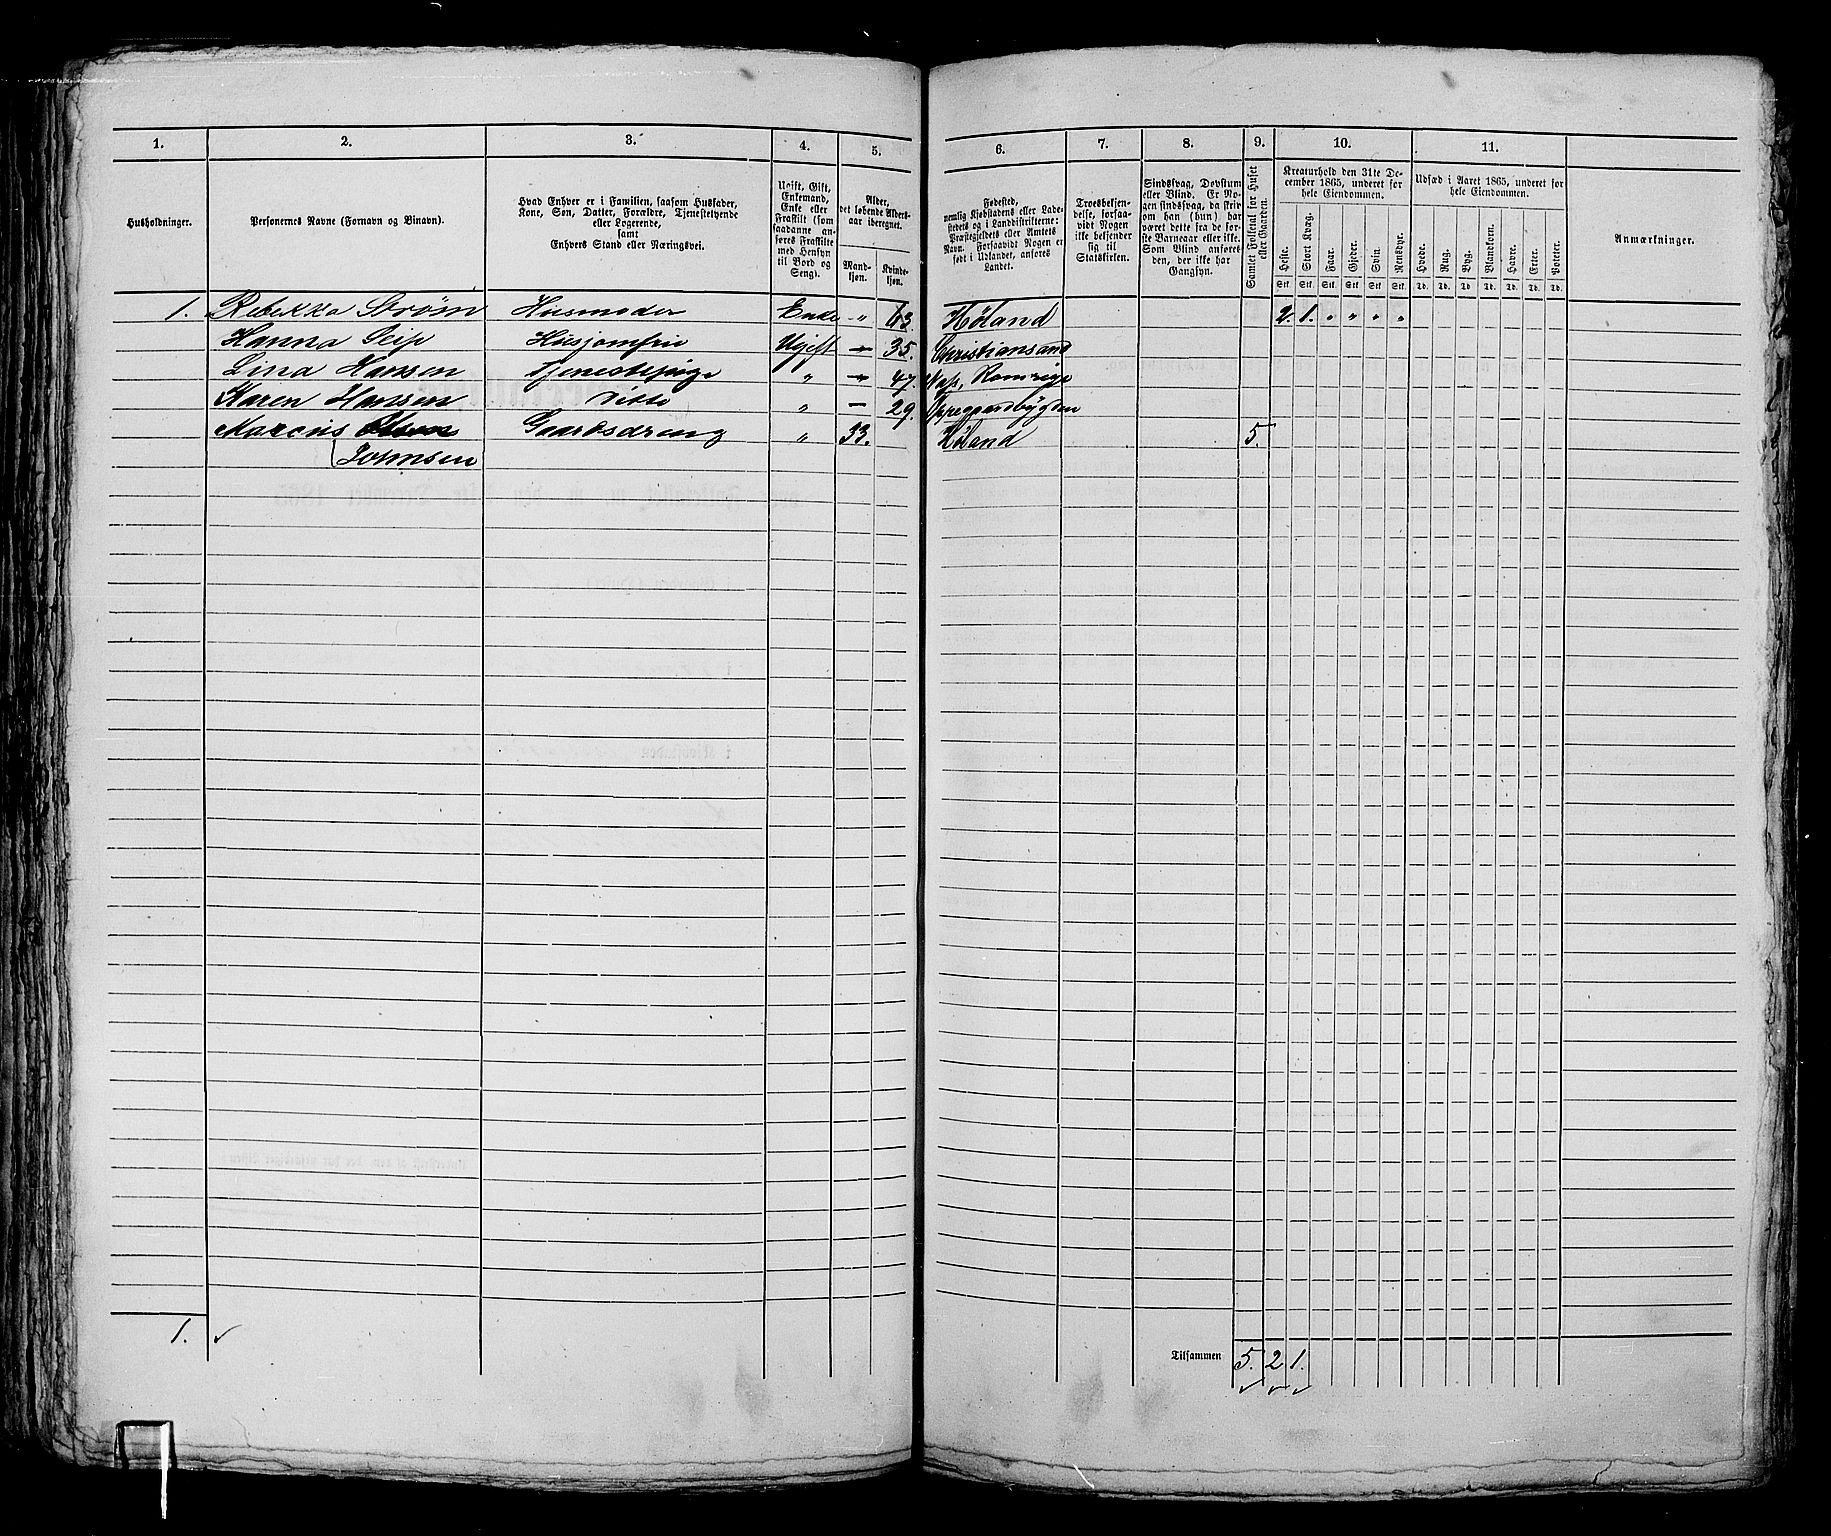 1. 2. 3. 4. 5. 6. 7. 8. 9. 10. 11.
Husholdninger.
Personernes Navne (Fornavn og Binavn).
Hvad Enhver er i Familien, saasom Husfader,
Kone, Søn, Datter, Forældre, Tjenestetyende
eller Logerende,
samt
Enhvers Stand eller Næringsvei.
Ugift, Gift,
Enkemand,
Enke eller
Fraskilt (som
saadanne an-
føres Fraskilte
med Hensyn
til Bord og
Seng).
Alder,
det løbende Alders-
aar iberegnet.
Mand-
kjøn.
Kvinde-
kjøn.
Fødested,
nemlig Kjøbstadens eller Lade-
stedets og i Landdistrikterne:
Præstegjeldets eller Amtets
Navn. Forsaavidt Nogen er
født i Udlandet, anføres
Landet.
Troesbekjen-
delse, forsaa-
vidt Nogen
ikke bekjender
sig til
Statskirken.
Sindssvag, Døvstum
eller Blind. Er No-
gen sindssvag, da skriv
om han (hun) har
været dette fra de før-
ste Barneaar eller ikke.
Som Blind anføres
den, der ikke har
Gangsyn.
Samlet Folketal for Huset
eller Gaarden.
Kreaturhold den 31te De-
cember 1865, underet for
hele Eiendommen.
Heste. Stort Kvæg. Faar. Gjeder. Svin. Rensdyr.
Stk. Stk. Stk. Stk. Stk. Stk.
Udsæd i Aaret 1865, underet for
hele Eiendommen.
Hvede. Rug. Byg. Blandkorn. Havre. Erter. Poteter.
Td. Td. Td. Td. Td. Td. Td.
Anmærkninger.
1. Rebekka Strøm Husmoder Enke " 63. Høland 2. 1. " " " "
Hanna Husjomfru Ugift — 35. Christiansand
Lina Hansen Tjenestepige " — 47. Næs, Romerige
Karen Hansen Ditto " — 29. Oppegaardbygden
Marcus Olsen Gaardsdreng " 33. Høland 5.
(Johnsen
1. ✓
Tilsammen 5. 2 1.
✓ ✓ ✓